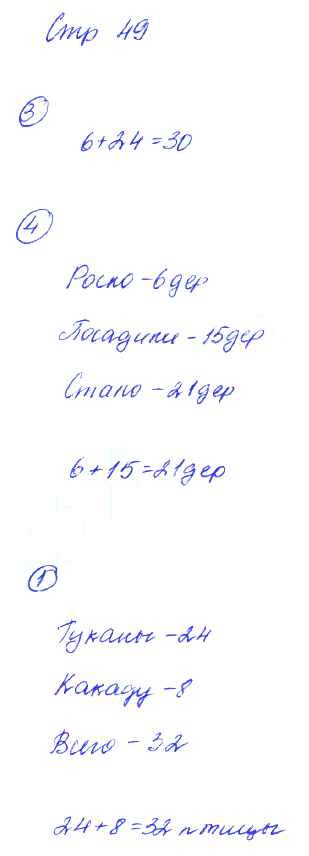 Стр 49
3
6+24=30
4
Росло -6 дер
Посадили - 15 дер
Стало - 21 дер
6+15=21 дер
1
Туканы -24
Какаду -8
Всего - 32
24+8=32 птицы